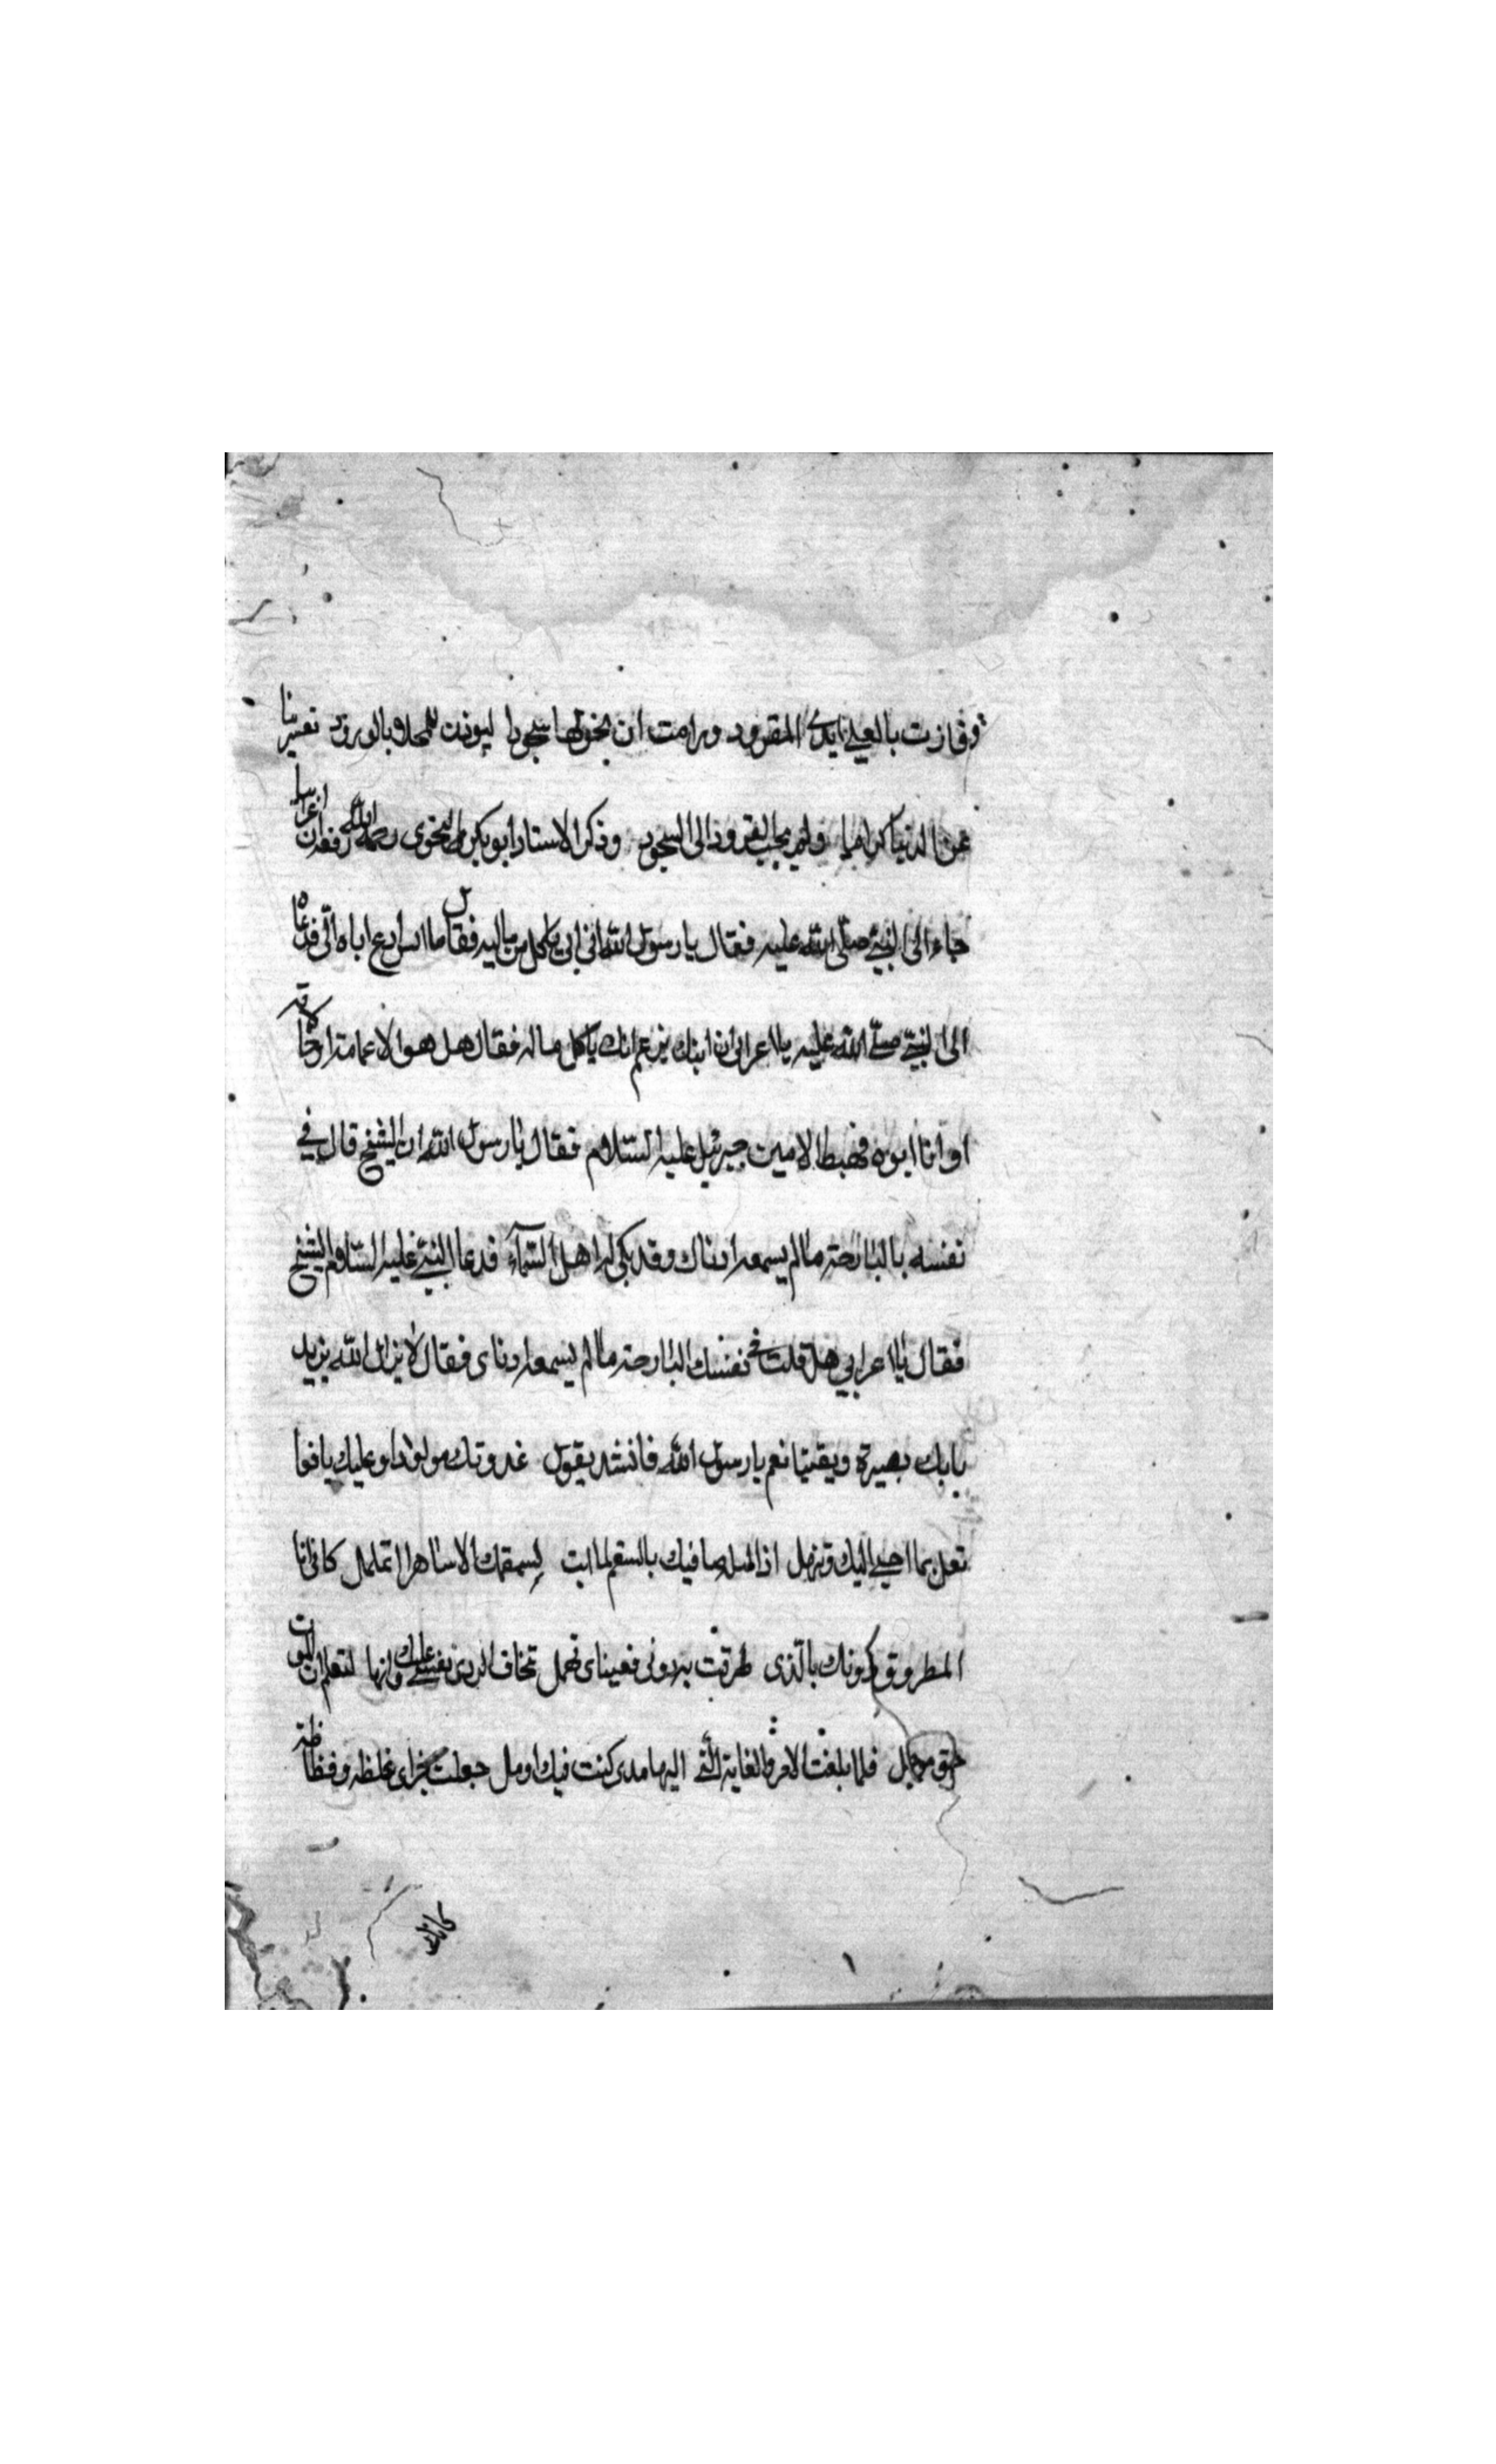 وفازت بالعلى ايدى القرود ورامت ان نخر لها سجودا ليوذن للمحل بالورود تعسرنا
عن الدنيا كراما ولم نجب القرود الى السجود وذكر الاستاد ابو بكر النحوى رحمه الله رفعه ان اعرابيا
جاء الى النبي صلى الله عليه فقال يا رسول الله ان ابى ياكل من ماليه فقال ما اس ادع اباه الى فدعاه
الى النبي صلى الله عليه يا اعرابي ان ابنك يزعم انك ياكل ماله فقال هل هو الا عامته او خالاته
او انا ابوه فهبط الامين جبرئيل عليه السلام فقال يا رسول الله ان الشيخ قال في
نفسه بالبارحة ما لم يسمعه اذناك وقد بكى له اهل السمآء فدعا النبي عليه السلام الشيخ
فقال يا اعرابي هل قلت في نفسك البارحة ما لم يسمعه اذناى فقال لا يزال الله يزيد
بابك بصيرة ويقينا نعم يا رسول الله فانشد يقول غدوتك مولودا وعليك يافعا
تعل بما احبى اليك وتنهل اذا ليله صافيك بالسقم لم ابت لسقمك الا ساهرا اتململ كانى انا
المطروق دونك بالذى طرقت به دونى فعيناى تهمل تخاف الردى نفسي عليك وانها لتعلم ان الموت
حق موجل فلما بلغت الامر والغاية التى اليها مدى كنت فيك اومل جعلت جزاى غلظه وفظاظة
كانك